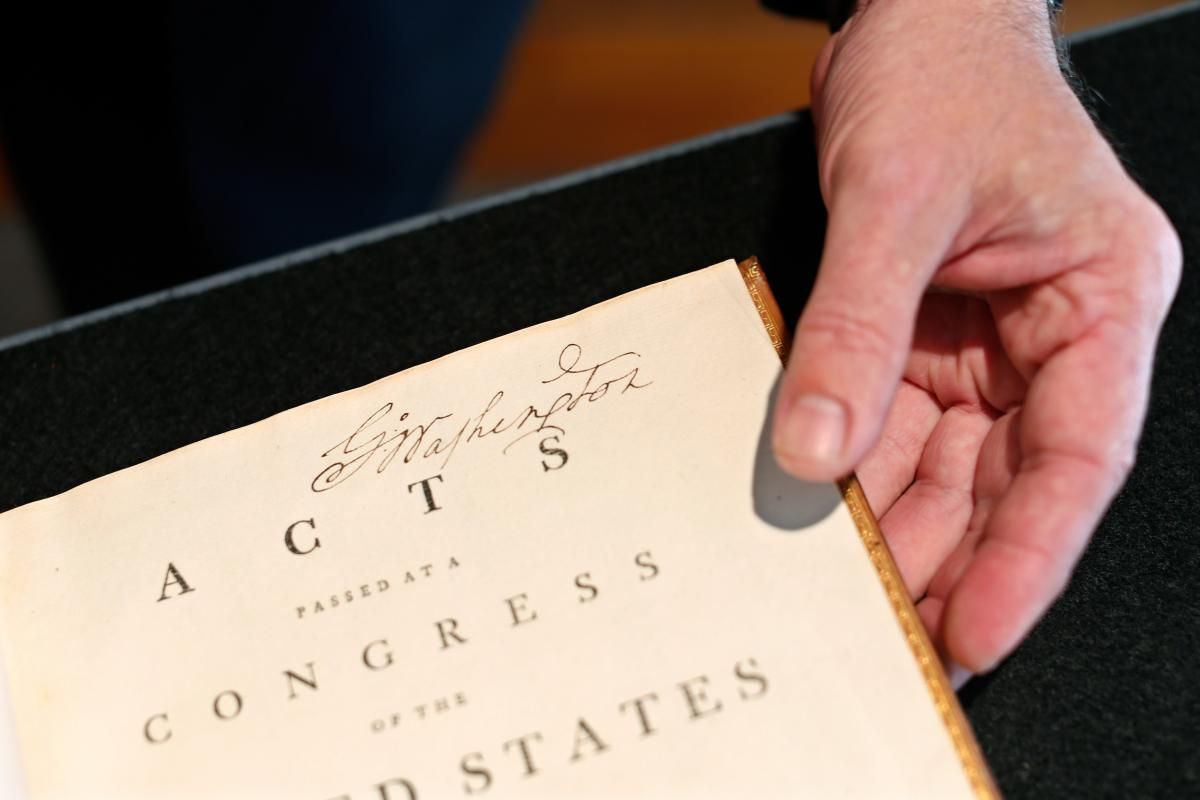 G:Washington
ACTS
PASSED AT A
CONGRESS
OF THE
ED STATES